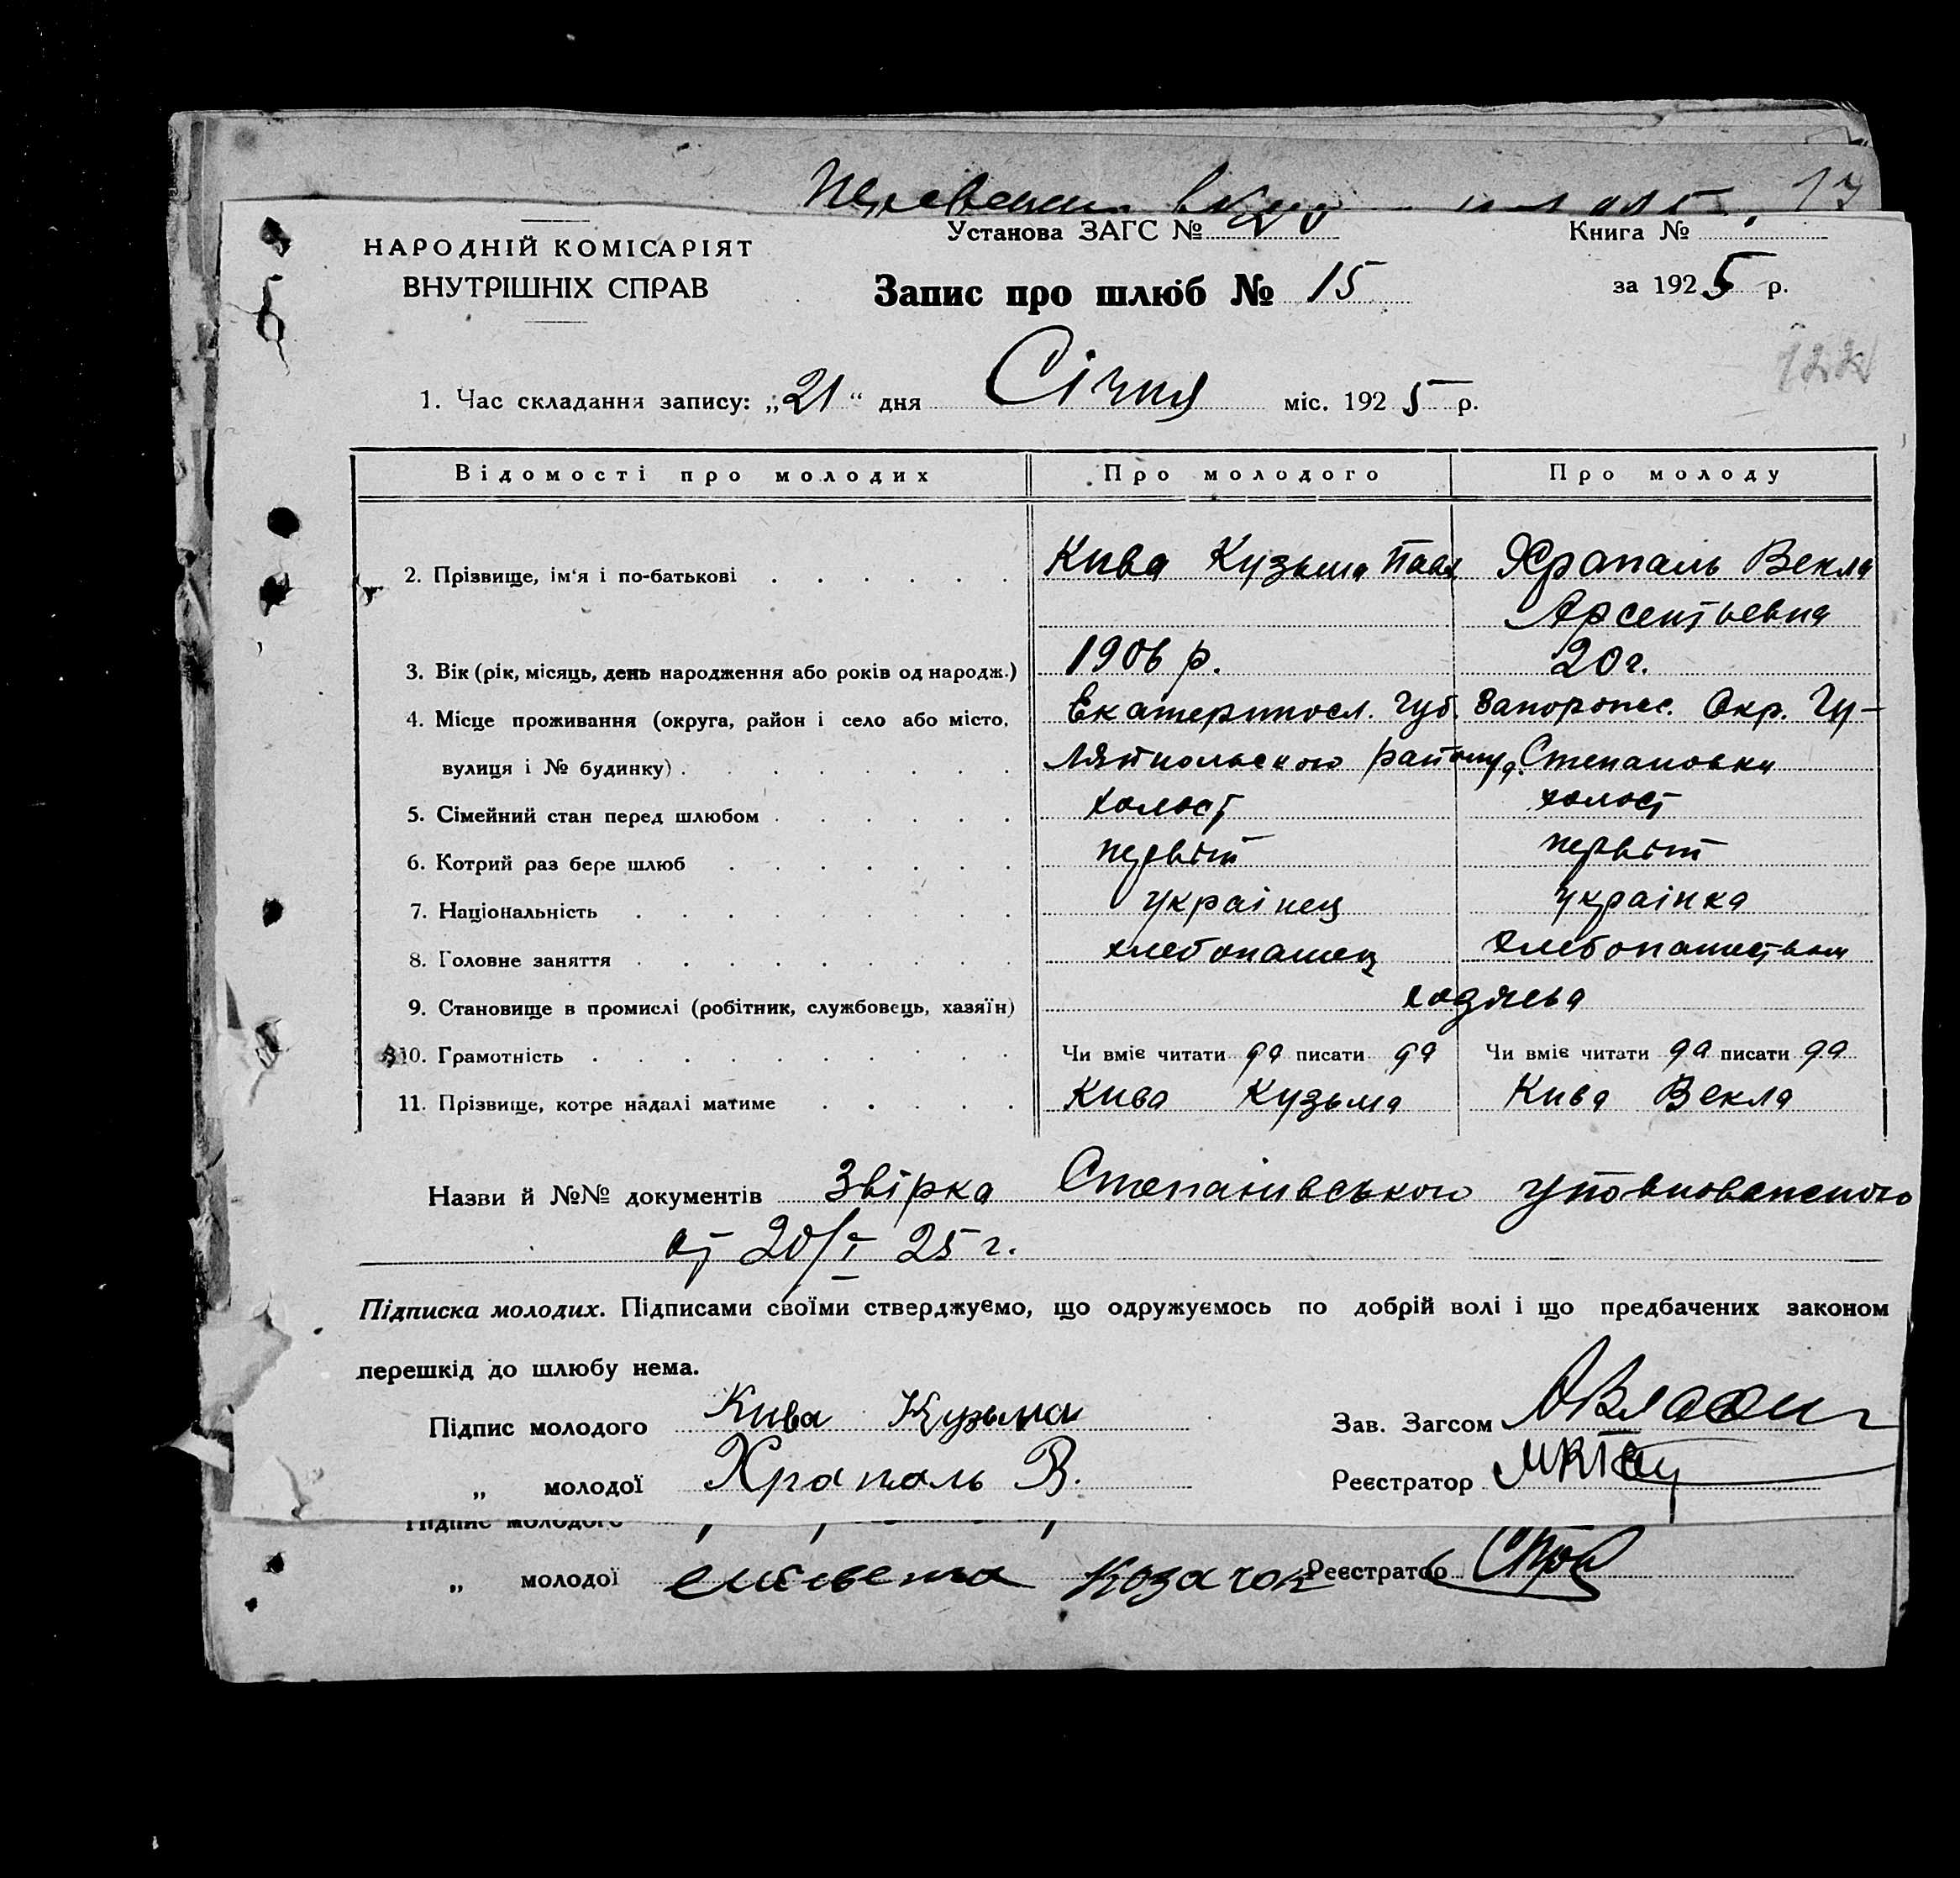 17
НАРОДНІЙ КОМІСАРІЯТ
ВНУТРІШНІХ СПРАВ
Установа ЗАГС №
Книга №
Запис про шлюб № 15
за 1925 р.
1. Час складання запису: „21“ дня Січня міс. 1925 р.
Відомості про молодих Про молодого Про молоду
2. Прізвище, ім'я і по-батькові Кива Кузьма Павл Храпаль Векла
Арсентьевна
3. Вік (рік, місяць, день народження або років од народж.) 1906 р. 20 г.
4. Місце проживання (округа, район і село або місто, Екатериносл. губ. Запорожс. Окр. Гу-
вулиця і № будинку) ляйпольского району д. Степановки
5. Сімейний стан перед шлюбом холост холост
6. Котрий раз бере шлюб первій первій
7. Національність українец українка
8. Головне заняття хлебопашец хлебопашеством
9. Становище в промислі (робітник, службовець, хазяїн)
10. Грамотність Чи вміє читати да писати да Чи вміє читати да писати да
11. Прізвище, котре надалі матиме Кива Кузьма Кива Векла
Назви й №№ документів Звірка Степанівського уповноваженого
от 20/I 25 г.
Підписка молодих. Підписами своїми стверджуємо, що одружуємось по добрій волі і що предбачених законом
перешкід до шлюбу нема.
Підпис молодого Кива Кузьма
Зав. Загсом
„ молодої Храпаль В.
Реєстратор
Підпис молодого
„ молодої Козачок Реєстратор